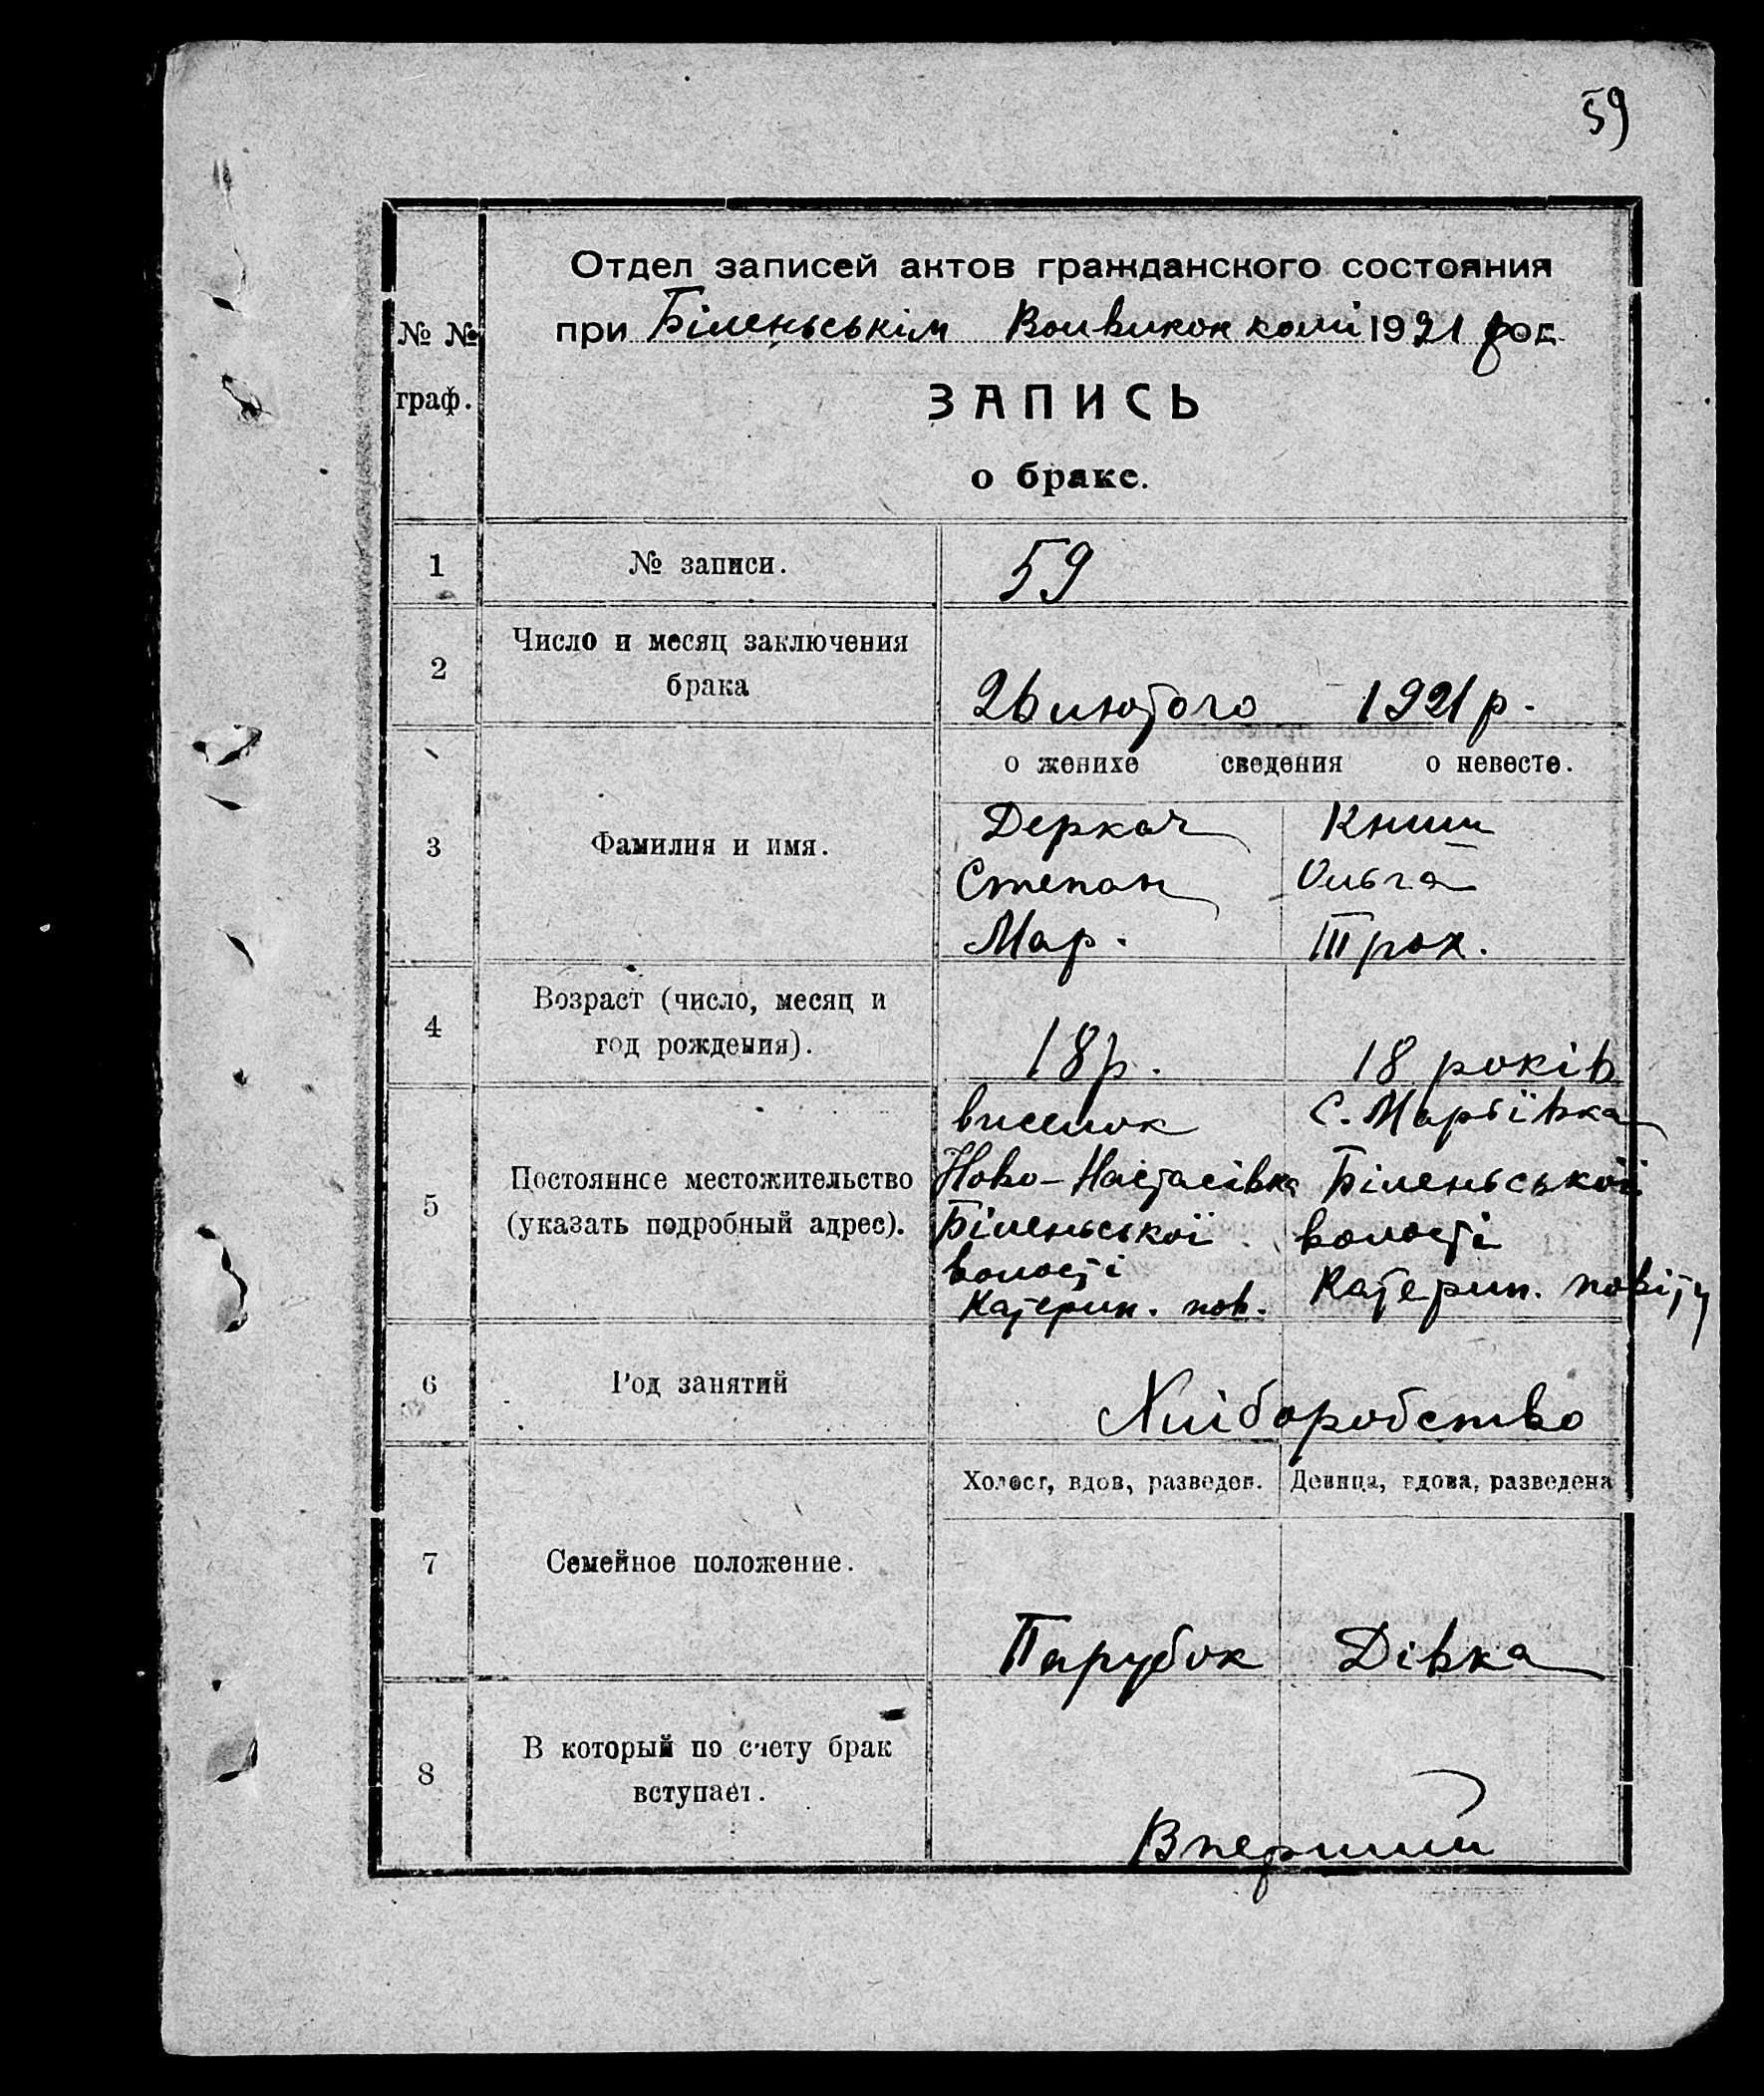 59
№ №
граф.
Отдел записей актов гражданского состояния
при Біленьськім Волвиконкомі 1921 рос.
ЗАПИСЬ
о браке.
1 № записи. 59
2 Число и месяц заключения
брака
26 лютого 1921 р.
о женихе сведения о невесте.
3 Фамилия и имя.
Деркач Книш
Степан Ольга
Мар. Трох.
4 Возраст (число, месяц и
год рождения).
18 р. 18 років
5 Постоянное местожительство
(указать подробный адрес).
виселок С. Марьївка
Ново-Настасівка Біленьської
Біленьської волості
волості Катерин. повіту
Катерин. пов.
6 Род занятий Хліборобство
Холост, вдов, разведен. Девица, вдова, разведена
7 Семейное положение.
Парубок Дівка
8 В который по счету брак
вступает.
Вперший